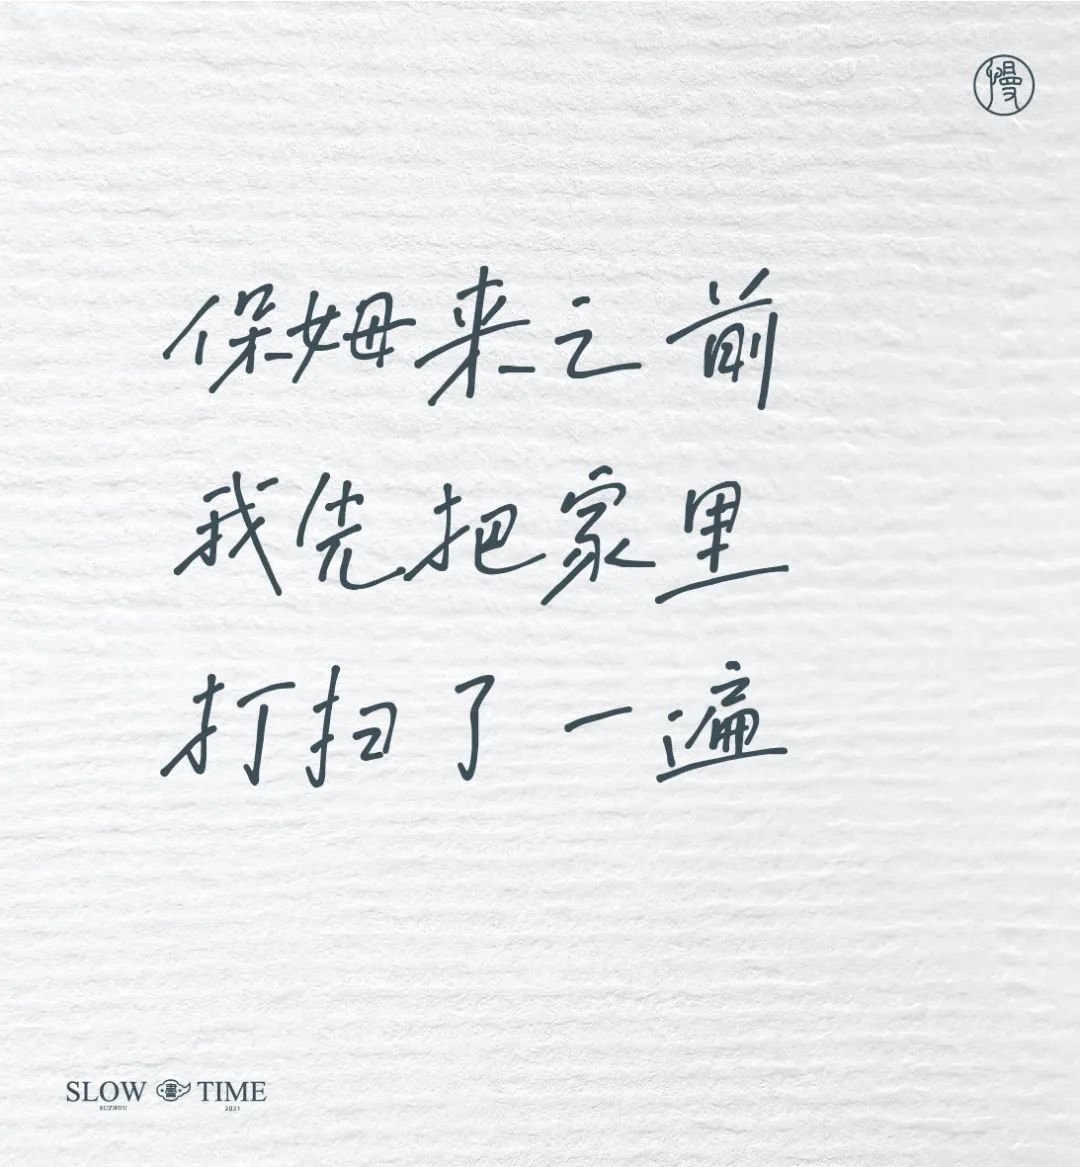 慢
保姆来之前
我先把家里
打扫了一遍
SLOW 書 TIME
SUZHOU 2021